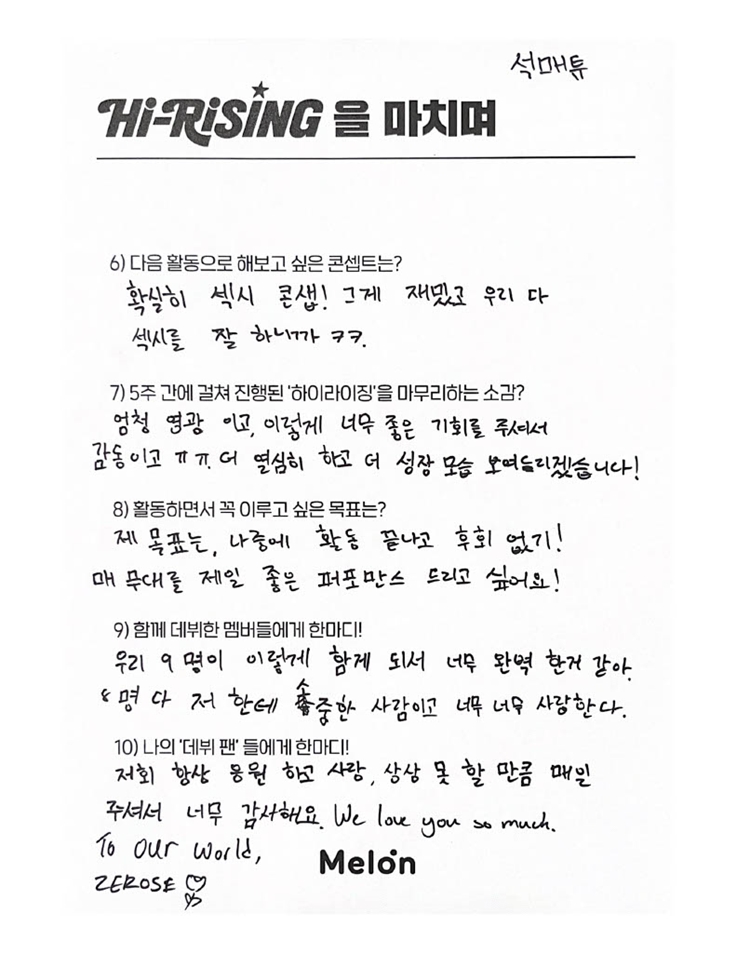 석매튜
Hi-RiSiNG 을 마치며
6) 다음 활동으로 해보고 싶은 콘셉트는?
확실히 섹시 콘샙! 그게 재밌고 우리 다
섹시를 잘 하니까 ㅋㅋ.
7) 5주 간에 걸쳐 진행된 '하이라이징'을 마무리하는 소감?
엄청 영광 이고, 이렇게 너무 좋은 기회를 주셔서
감동이고 ㅠㅠ. 더 열심히 하고 더 성장 모습 보여드리겠습니다!
8) 활동하면서 꼭 이루고 싶은 목표는?
제 목표는, 나중에 활동 끝나고 후회 없기!
매 무대를 제일 좋은 퍼포만스 드리고 싶어요!
9) 함께 데뷔한 멤버들에게 한마디!
우리 9명이 이렇게 함게 되서 너무 완벽 한거 같아.
8명 다 저 한테 소중한 사람이고 너무 너무 사랑한다.
10) 나의 '데뷔 팬' 들에게 한마디!
저희 항상 응원 하고 사랑, 상상 못 할 만큼 매일
주셔서 너무 감사해요. We love you so much.
To our world,
ZEROSE
Melon